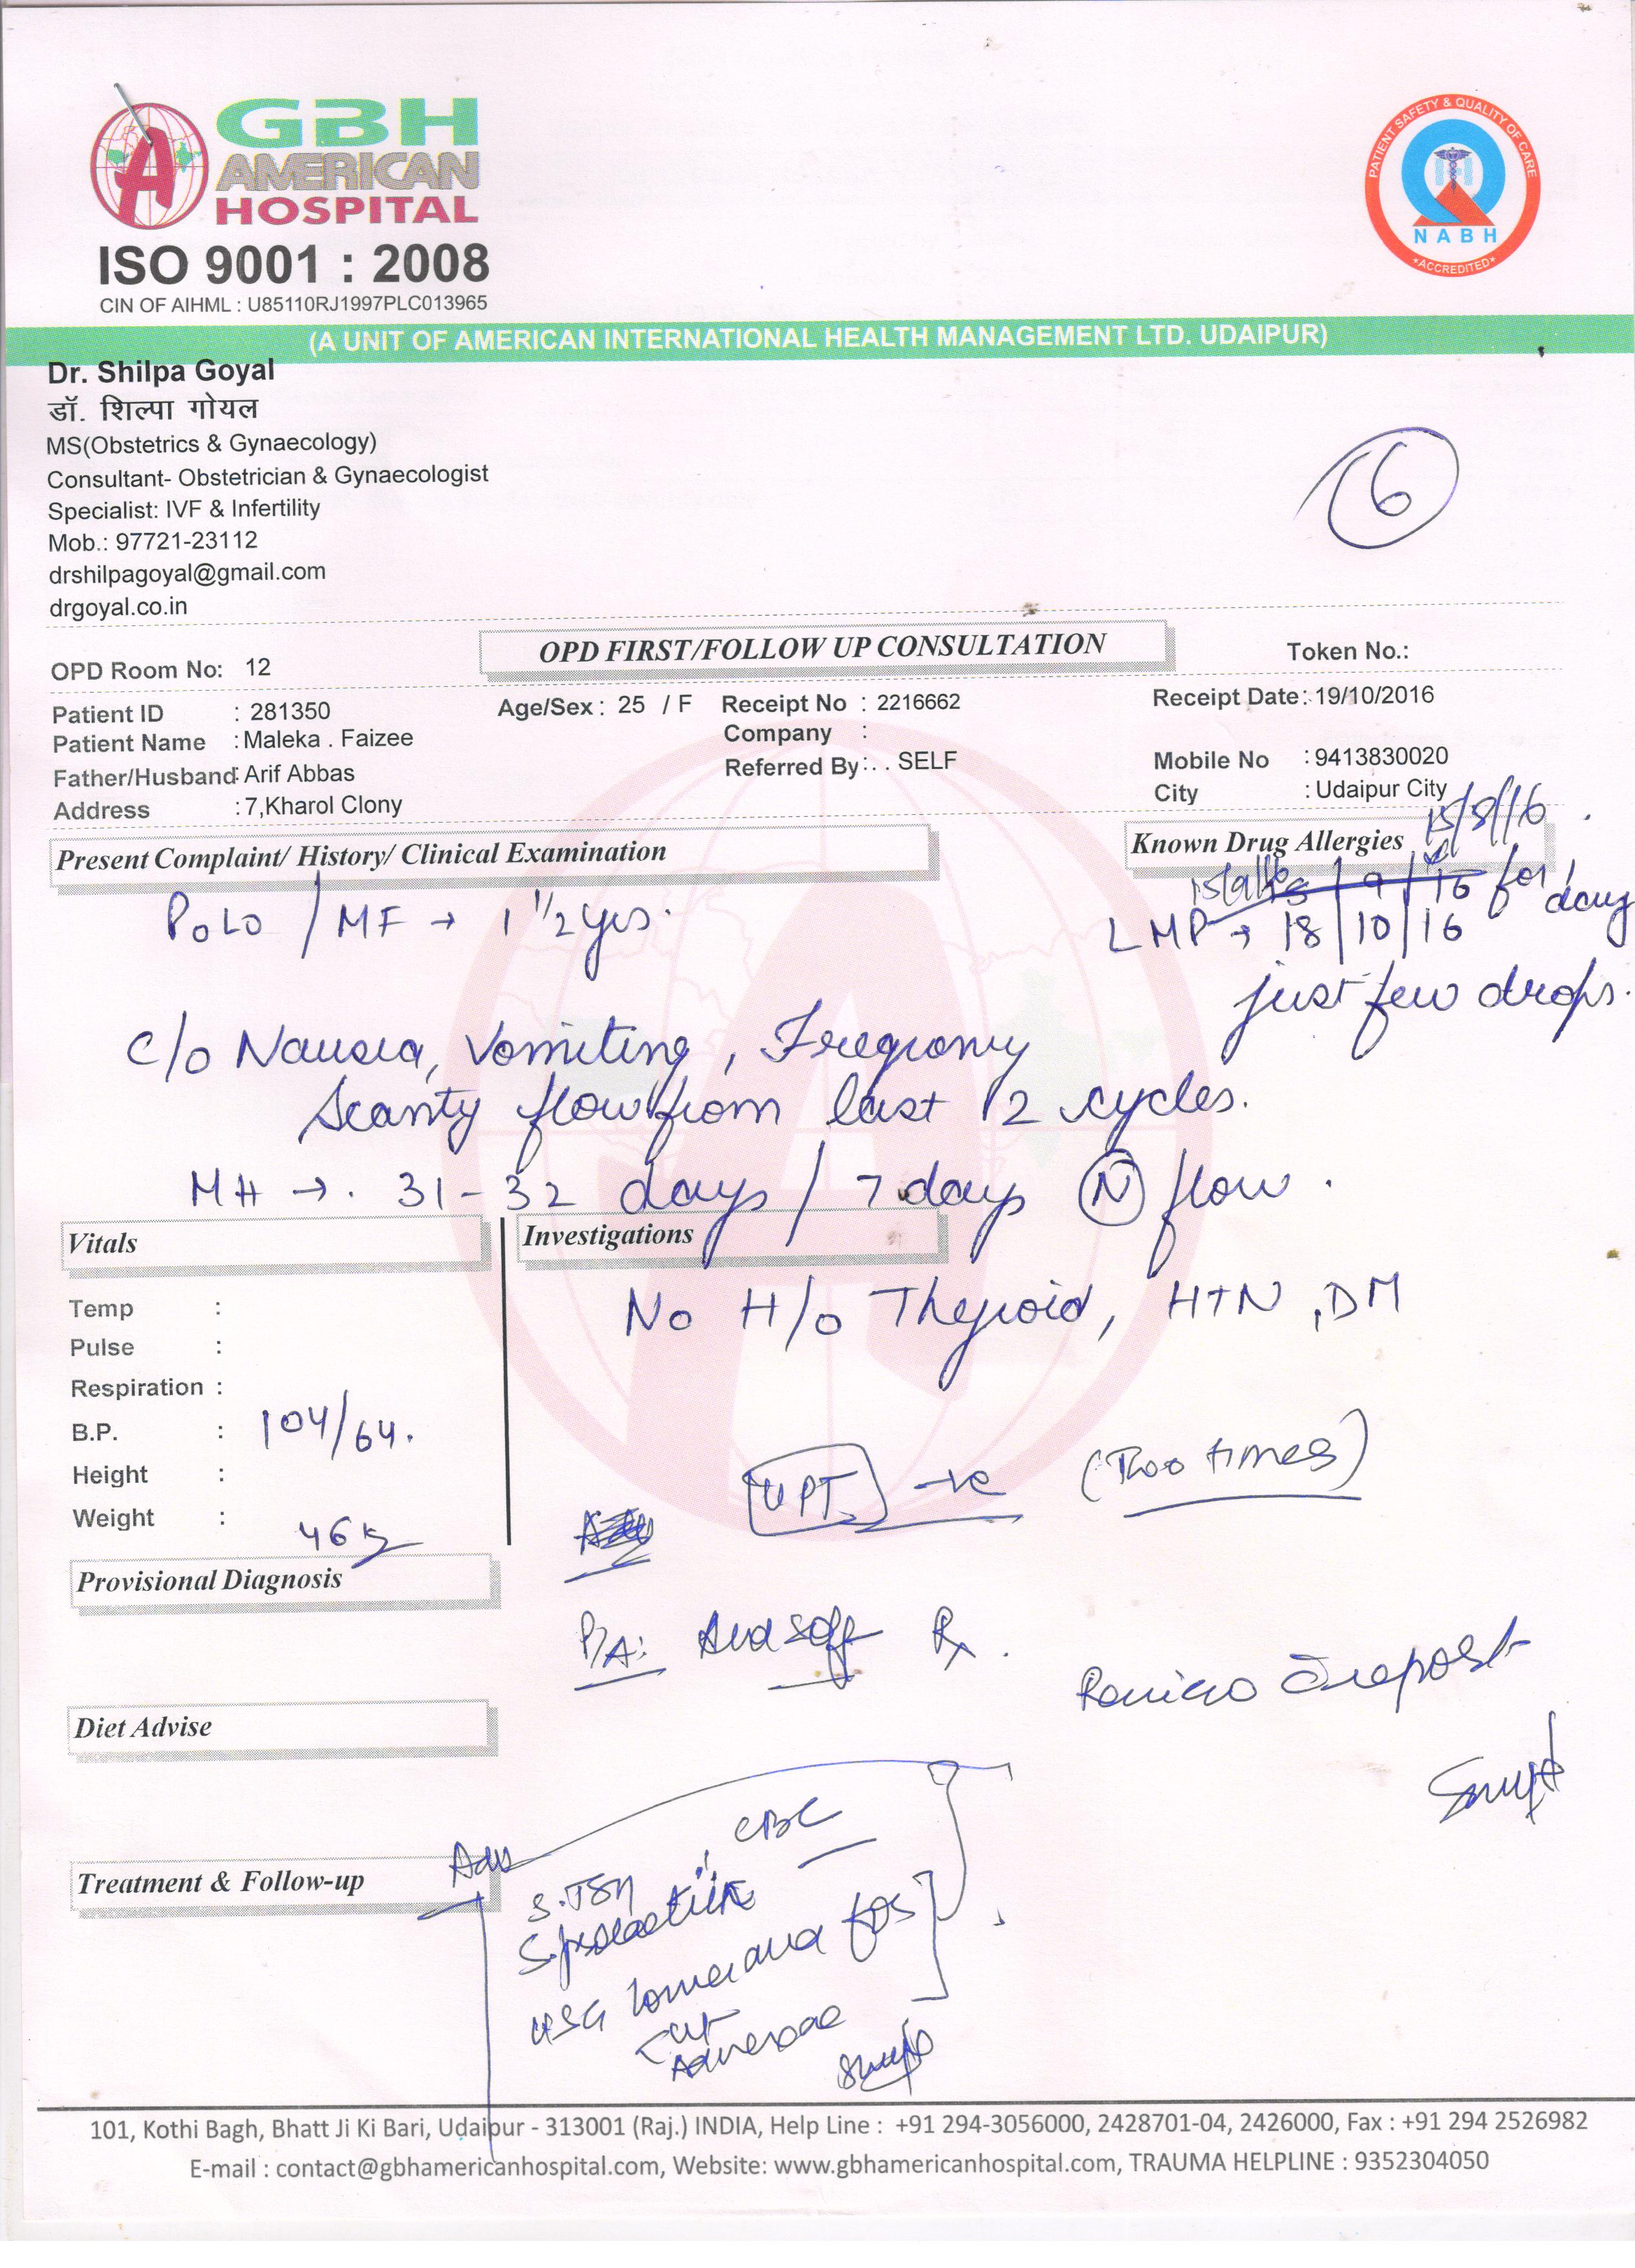 GBH
AMERICAN
HOSPITAL
ISO 9001 : 2008
CIN OF AIHML : U85110RJ1997PLC013965
PATIENT SAFETY & QUALITY OF CARE
NABH
ACCREDITED
(A UNIT OF AMERICAN INTERNATIONAL HEALTH MANAGEMENT LTD. UDAIPUR)
Dr. Shilpa Goyal
डॉ. शिल्पा गोयल
MS(Obstetrics & Gynaecology)
Consultant- Obstetrician & Gynaecologist
Specialist: IVF & Infertility
Mob.: 97721-23112
drshilpagoyal@gmail.com
drgoyal.co.in
6
OPD FIRST/FOLLOW UP CONSULTATION
OPD Room No: 12
Token No.:
Patient ID : 281350 Age/Sex : 25 / F Receipt No : 2216662 Receipt Date : 19/10/2016
Patient Name : Maleka . Faizee Company :
Father/Husband : Arif Abbas Referred By : . . SELF Mobile No : 9413830020
Address : 7,Kharol Clony City : Udaipur City
15/8/16
Present Complaint/ History/ Clinical Examination Known Drug Allergies
for 1 day
P0L0 / MF → 1 1/2 yrs. LMP → 18/10/16
just few drops.
c/o Nausea, Vomiting, Freqency
Scanty flow from last 2 cycles.
MH → . 31-32 days / 7 days (N) flow .
Vitals Investigations
No H/o Thyroid, HTN, DM
Temp :
Pulse :
Respiration :
B.P. : 104/64.
Height :
UPT -ve (Two times)
Weight : 46 kg
Provisional Diagnosis
P/A: And soft
Review c report
Diet Advise
Adv CBC
Treatment & Follow-up
S. TSH
S. prolactin
USG lower and for
ut
Adnexae
101, Kothi Bagh, Bhatt Ji Ki Bari, Udaipur - 313001 (Raj.) INDIA, Help Line : +91 294-3056000, 2428701-04, 2426000, Fax : +91 294 2526982
E-mail : contact@gbhamericanhospital.com, Website: www.gbhamericanhospital.com, TRAUMA HELPLINE : 9352304050